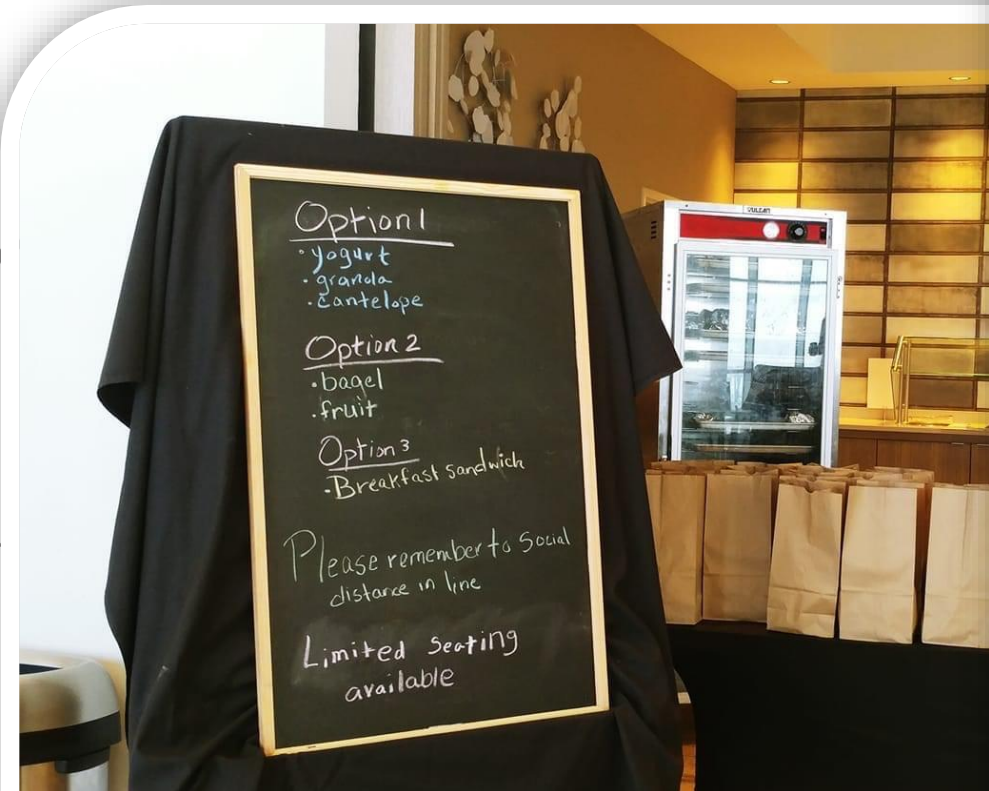 Option 1
• yogurt
• granola
• cantelope
Option 2
• bagel
• fruit
Option 3
• Breakfast sandwich
Please remember to Social
distance in line
Limited Seating
available
VULCAN